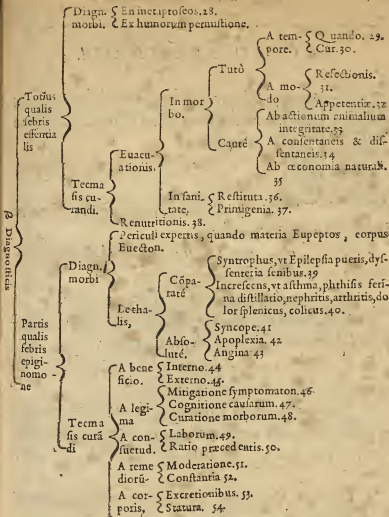 Diagn. En incriptoseos.28.
morbi. Ex humorum permistione.
A tem- Quando. 29.
pore. Cur.30.
Tutò
A mo- Refectionis.
do 31.
Appetentiæ.32
In mor
bo.
Ab actionum animalium
integritate.33
Cautè A consentaneis & dis-
sentaneis.34
Ab œconomia naturali.
35
Totius
qualis
febris
essentia
lis
Euacu-
ationis.
Tecma
sis cu-
randi.
In sani- Restituta.36.
tate, Primigenia. 37.
Renutritionis. 38.
β Diagnosticis
Periculi expertis, quando materia Eupeptos, corpus
Euecton.
Diagn.
morbi
Syntrophus, vt Epilepsia pueris, dys-
senteria senibus.39
Cōpa-
raté
Increscens, vt asthma, phthisis feri-
na distillatio, nephritis, arthritis, do
lor splenicus, colicus.40.
Letha-
lis,
Syncope.41
Abso- Apoplexia. 42
luté. Angina 43
Partis
qualis
febris
epigi-
nomo -
ne
A bene Interno.44
ficio. Externo.45.
Mitigatione symptomaton.46.
A legi- Cognitione causarum. 47.
ma Curatione morborum. 48.
Tecma
sis curā
di
A con- Laborum.49.
suetud. Ratio præcedentis.50.
A reme Moderatione.51.
diorū- Constantia 52.
A cor- Excretionibus. 53.
poris, Statura. 54.